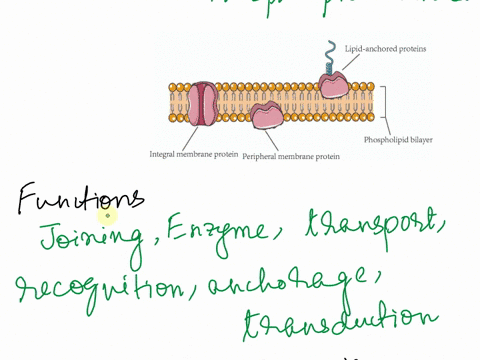 Lipid-anchored proteins
Phospholipid bilayer
Integral membrane protein
Peripheral membrane protein
Functions
Joining, Enzyme, transport,
recognition, anchorage,
transduction